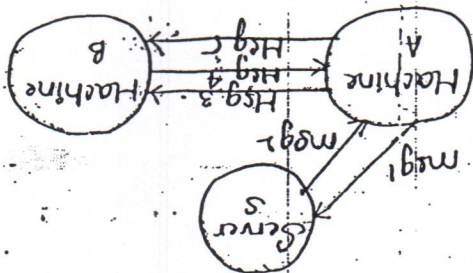 Server
S
msg1
msg2
Machine
A
Msg 3
Msg 4
Msg 5
Machine
B